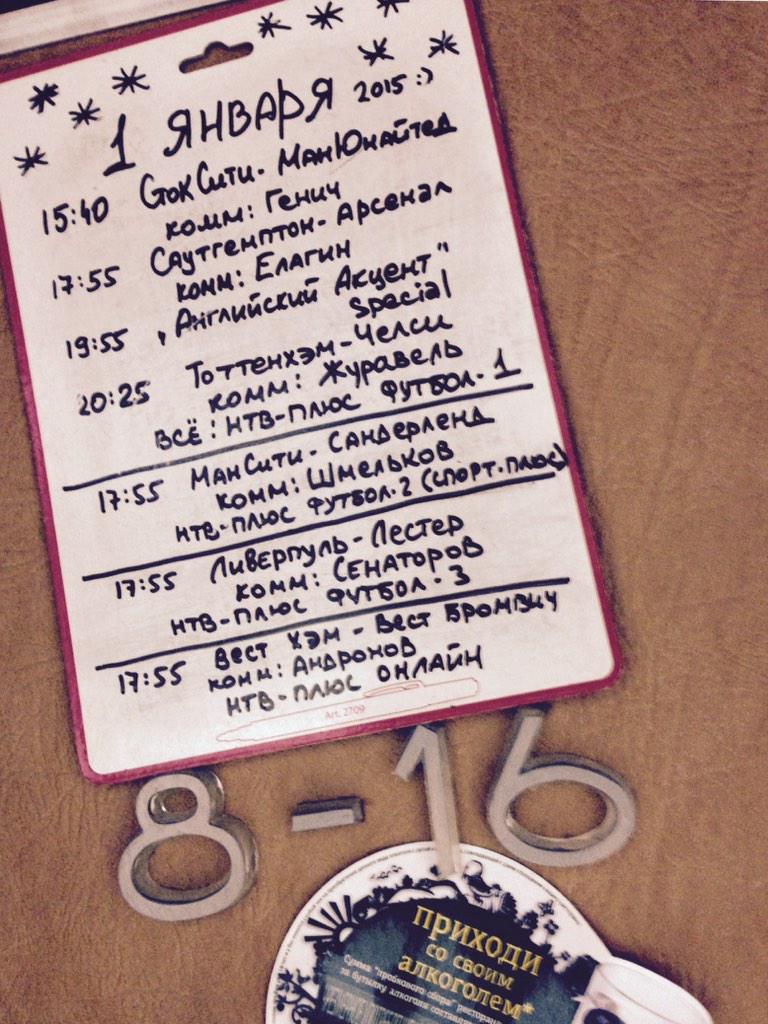 1 ЯНВАРЯ 2015 :)
15:40 Сток Сити - МанЮнайтед
комм: Генич
17:55 Саутгемптон - Арсенал
комм: Елагин
19:55 „Английский Акцент"
Special
20:25 Тоттенхэм - Челси
комм: Журавель
ВСЁ: НТВ-ПЛЮС ФУТБОЛ - 1
17:55 МанСити - Сандерленд
комм: Шмельков
НТВ-ПЛЮС ФУТБОЛ - 2 (СПОРТ-ПЛЮС)
17:55 Ливерпуль - Лестер
комм: СЕНАТОРОВ
НТВ-ПЛЮС ФУТБОЛ - 3
17:55 Вест Хэм - Вест Бромвич
комм: Андронов
НТВ-ПЛЮС ОНЛАЙН
Art. 2709
8-16
ПРИХОДИ
СО СВОИМ
АЛКОГОЛЕМ*
Сумма "пробкового сбора" ресторана
за бутылку алкоголя